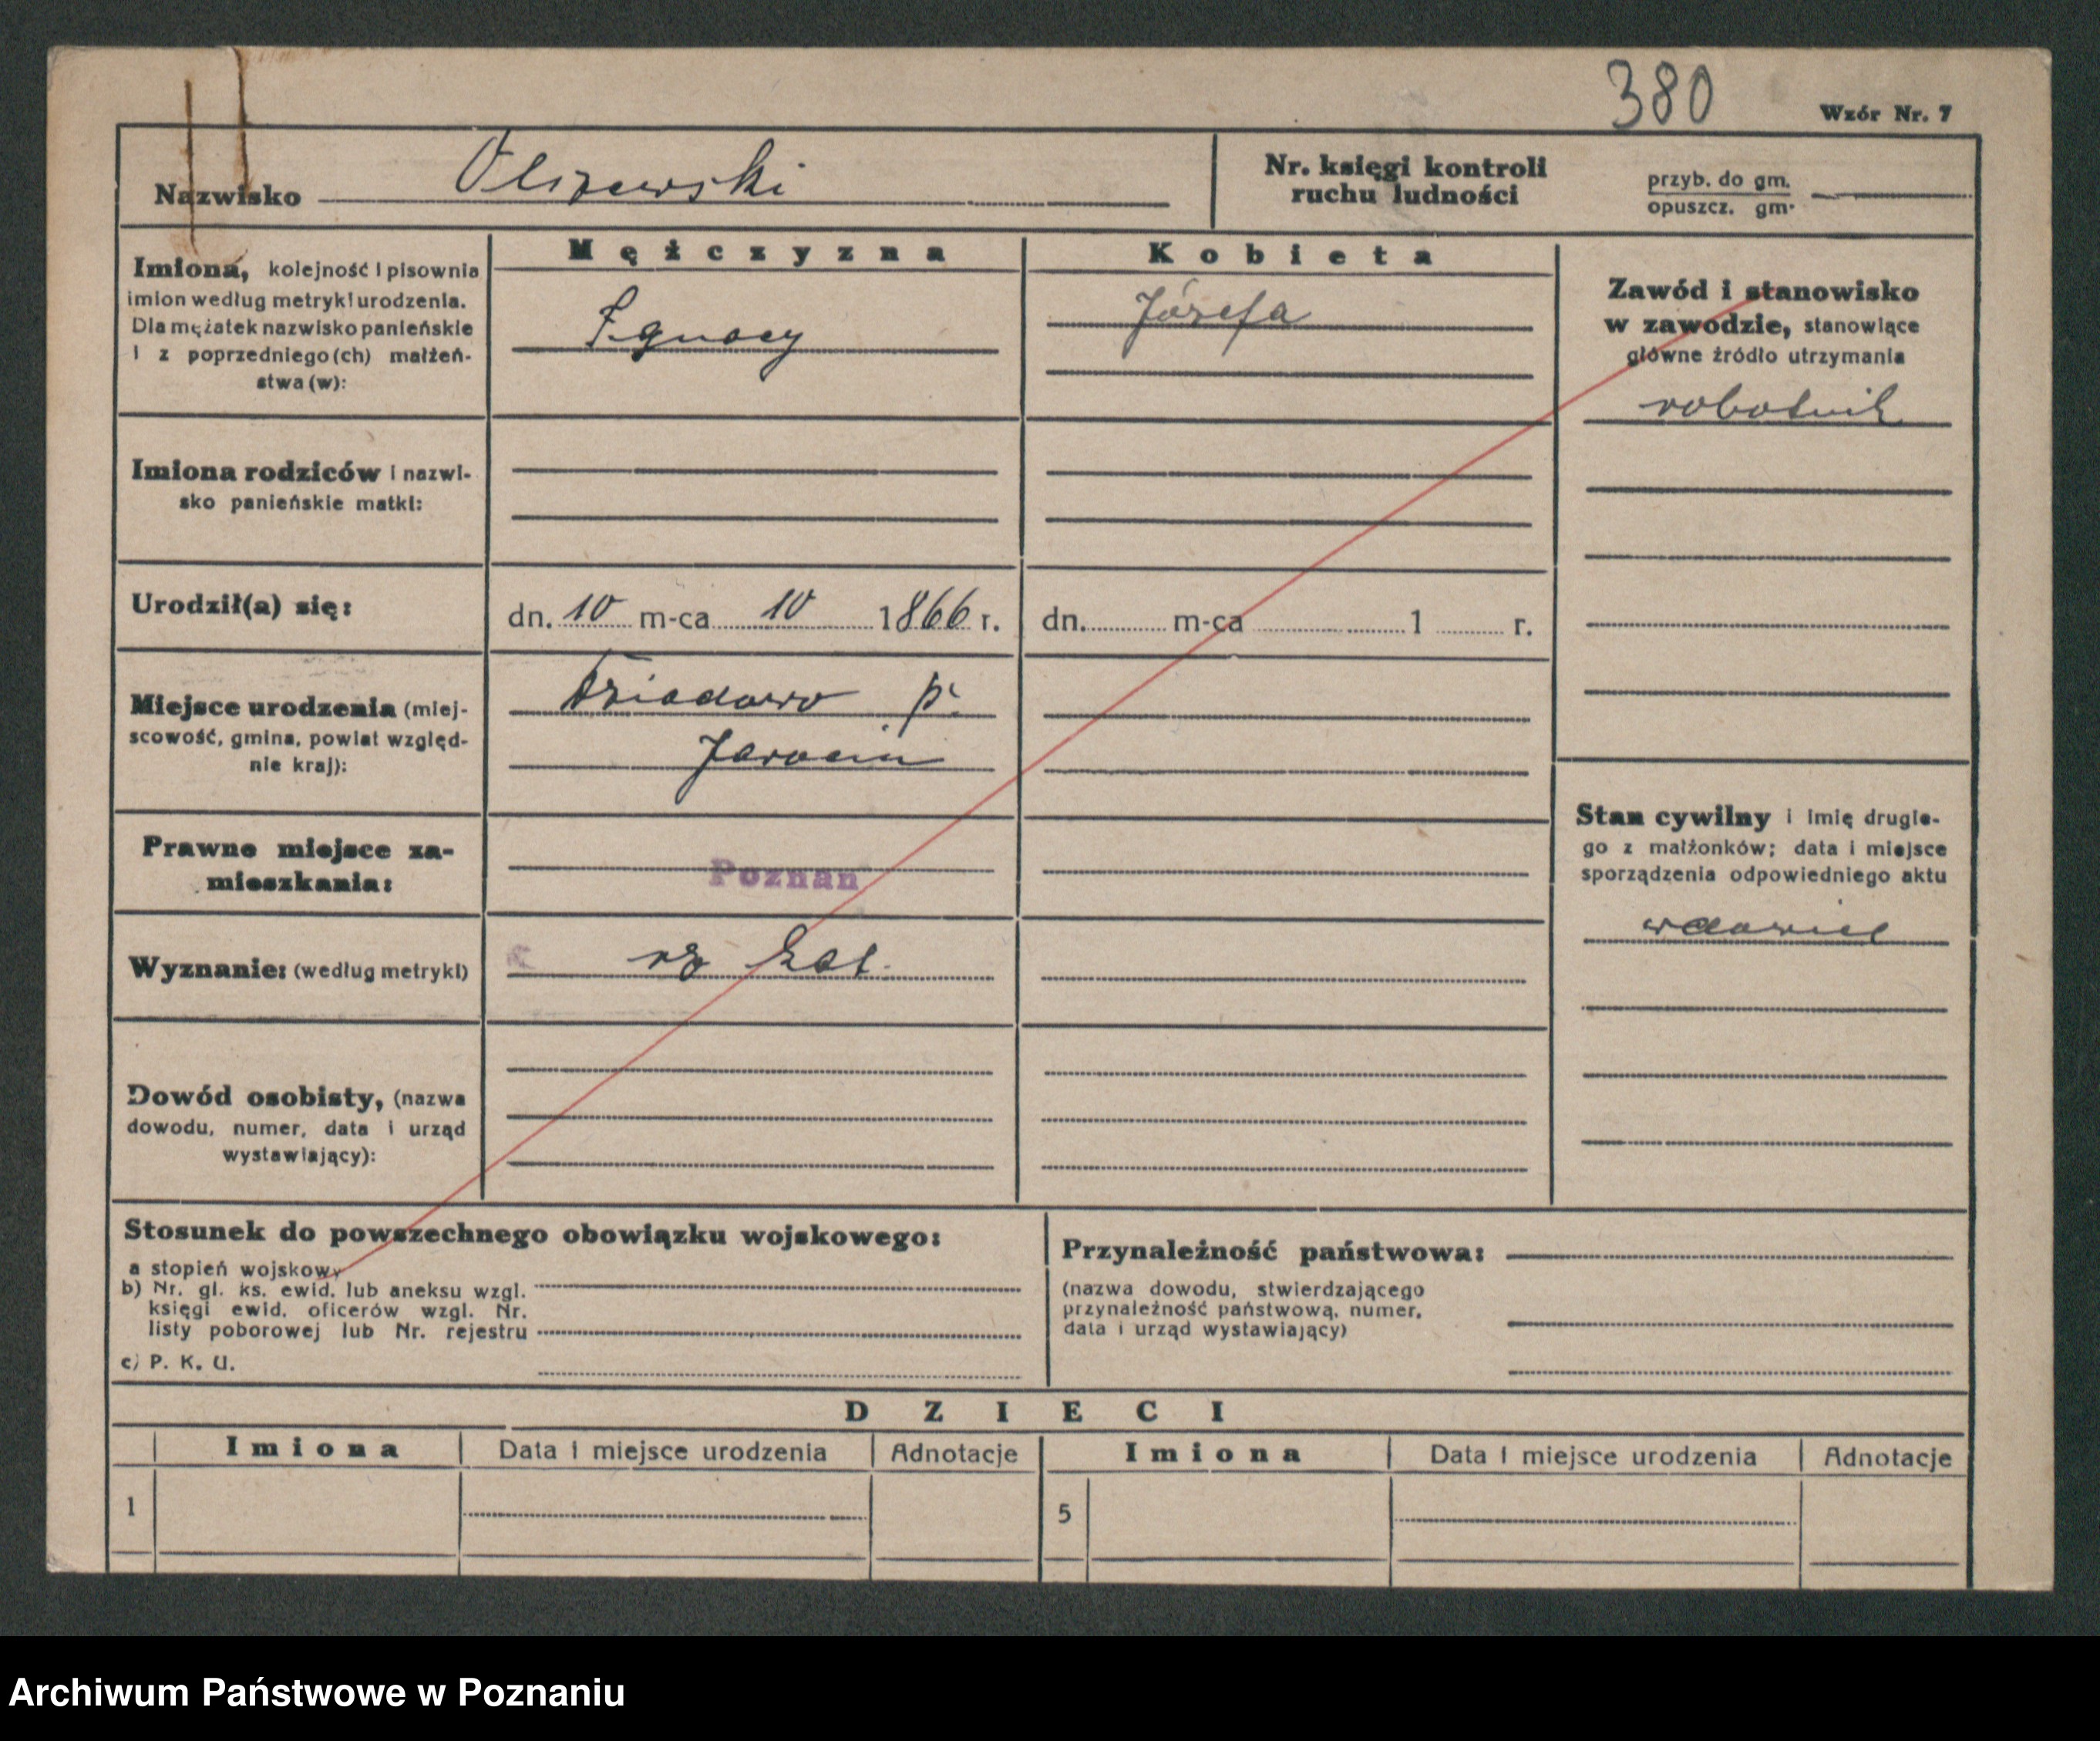 380
Wzór Nr. 7
Nazwisko Olszewski
Nr. księgi kontroli
ruchu ludności
przyb. do gm.
opuszcz. gm.
Mężczyzna
Kobieta
Imiona, kolejność i pisownia
imion według metryki urodzenia.
Dla mężatek nazwisko panieńskie
i z poprzedniego (ch) małżeń-
stwa (w):
Ignacy
Józefa
Zawód i stanowisko
w zawodzie, stanowiące
główne źródło utrzymania
robotnik
Imiona rodziców i nazwi-
sko panieńskie matki:
Urodził(a) się:
dn. 10 m-ca 10 1866 r.
dn. m-ca 1 r.
Miejsce urodzenia (miej-
scowość, gmina, powiat względ-
nie kraj):
p.
Jarocin
Prawne miejsce za-
mieszkania:
Poznań
Stan cywilny i imię drugie-
go z małżonków; data i miejsce
sporządzenia odpowiedniego aktu
wdowiec
Wyznanie: (według metryki)
rz kat.
Dowód osobisty, (nazwa
dowodu, numer, data i urząd
wystawiający):
Stosunek do powszechnego obowiązku wojskowego:
a stopień wojskowy
b) Nr. gl. ks. ewid. lub aneksu wzgl.
księgi ewid. oficerów wzgl. Nr.
listy poborowej lub Nr. rejestru
c) P. K. U.
Przynależność państwowa:
(nazwa dowodu, stwierdzającego
przynależność państwową, numer,
data i urząd wystawiający)
DZIECI
Imiona
Data i miejsce urodzenia
Adnotacje
Imiona
Data i miejsce urodzenia
Adnotacje
1
5
Archiwum Państwowe w Poznaniu